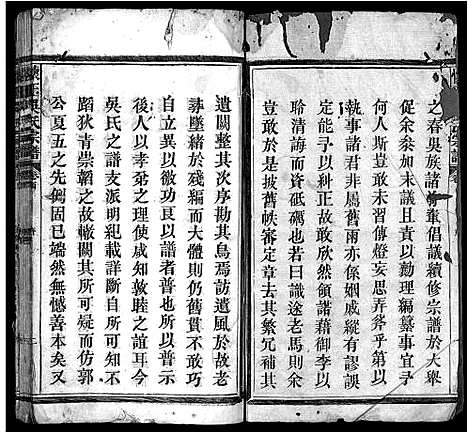 之春吳族諸 輩倡議續修宗譜於大舉
促余叅加討論責以勷理編纂事宜予
何人斯豈敢未習傳燈妄思弄斧乎第以
執事諸君非屬舊雨亦係姻戚縱有謬誤
定能予以糾正故敢欣然領諾藉御李以
聆清誨而資砥礪也若曰識途老馬則余
豈敢於是披舊帙審定章去其繁冗補其
遺闕整其次序勘其烏焉訪遺風於故老
尋墜緒於殘編而大體則仍舊貫不敢巧
自立異以徼功良以譜者普也所以普示
後人以孝弟之理使咸知敦睦之誼耳今
吳氏之譜支派明紀載詳斷自所可知不
蹈狄青崇韜之故轍闕其所可疑而仿郭
公夏五之先例固已端然無憾善本矣又
吳氏宗譜 卷首